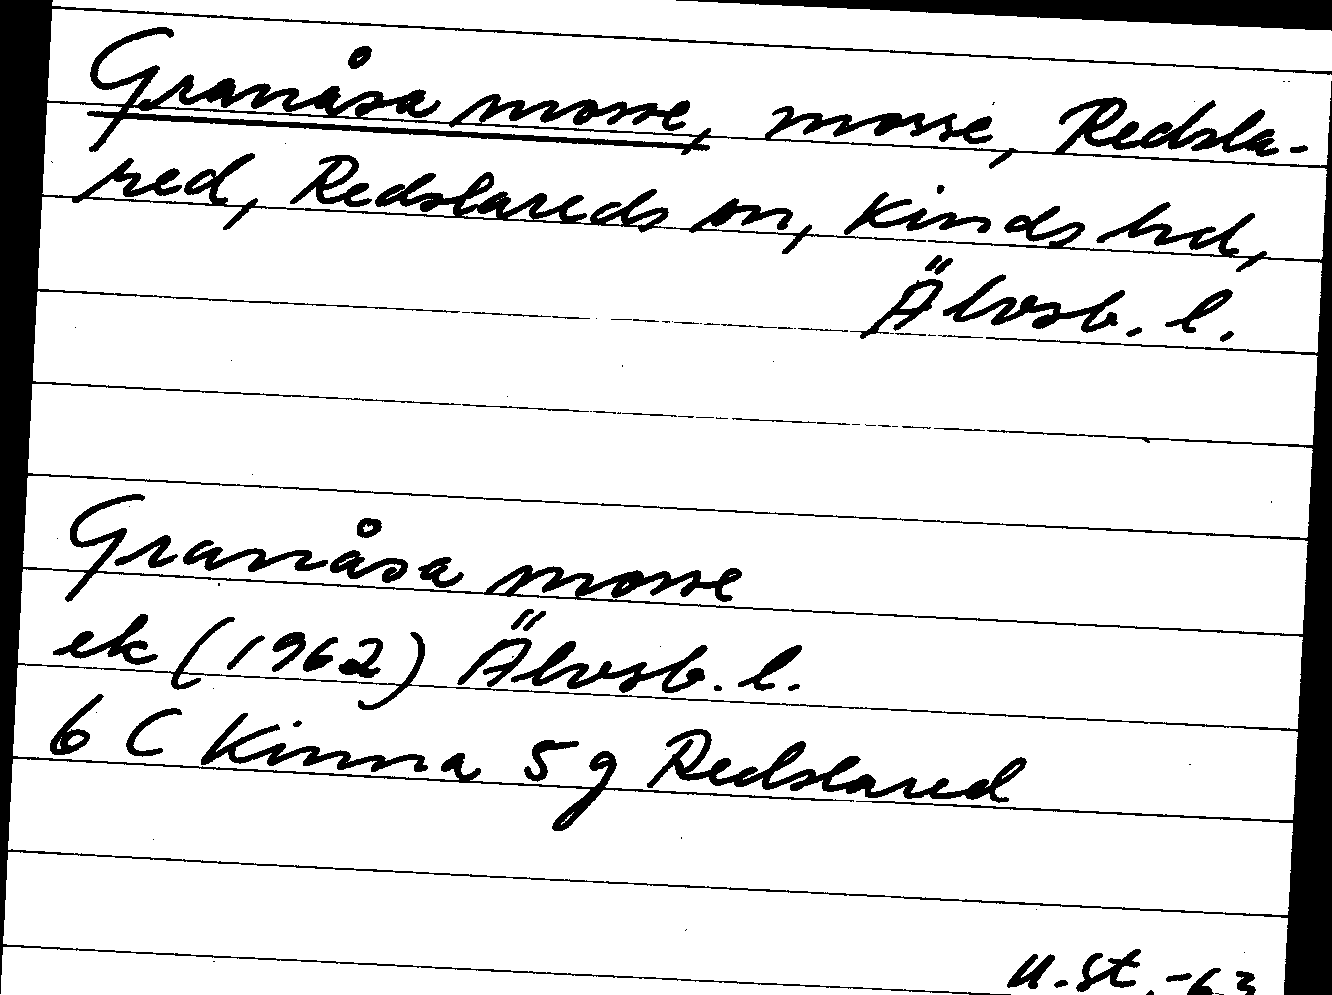 Granåsa mosse, mosse, Redsla-
red, Redslareds sn, Kinds hd,
Älvsb. l.
Granåsa mosse
ek (1962) Älvsb. l.
6 C Kinna 5 g Redslared
U.St.-63